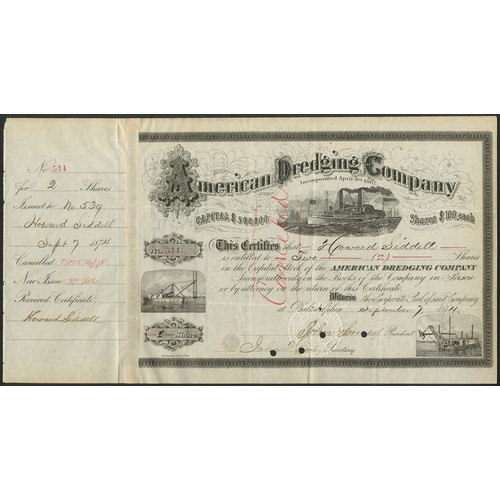 No. 511
for 2 Shares
Issued to No. 539
Howard Siddell
Sept 7 1874
Cancelled
New Issue
Received Certificate,
Howard Siddell
American Dredging Company
Incorporated April 9th 1867
CAPITAL $ 500,000
Shares $ 100 each
Cancelled
No. 511
This Certifies that Howard Siddell
is entitled to Two (2) Shares
in the Capital Stock of the AMERICAN DREDGING COMPANY
Transferable only on the Books of the Company in Person
or by Attorney on the return of this Certificate
Witness the Corporate Seal of said Company
at Philadelphia September 7 1874.
President
2 Shares
Secretary